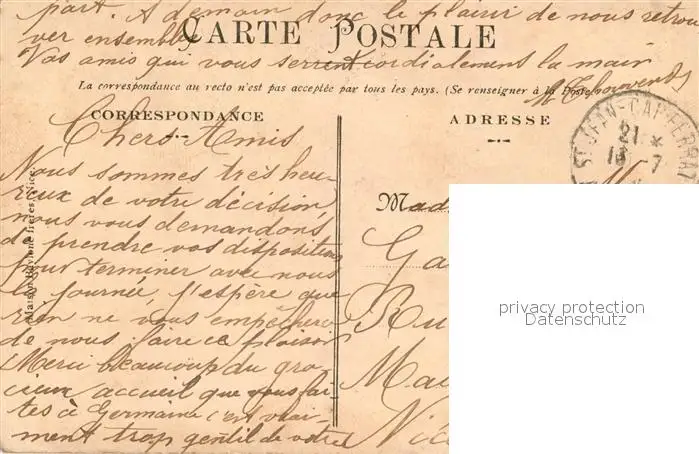 part. A demain donc le plaisir de nous retrou
ver ensemble
CARTE POSTALE
Vos amis qui vous serrent cordialement la main
La correspondance au recto n'est pas acceptée par tous les pays. (Se renseigner à la Poste
CORRESPONDANCE
ADRESSE
Chers Amis
Nous sommes très heu-
reux de votre décision,
nous vous demandons
de prendre vos dispositions
pour terminer avec nous
la journée, j'espère que
rien ne vous empêchera
de nous faire ce plaisir
Merci beaucoup du gra-
cieux accueil que vous fai-
tes à Germaine c'est vrai-
ment trop gentil de votre
ST JEAN-CAP-FERRAT
21 *
M
Mad
Ga
Ru
Mai
Nice
privacy protection
Datenschutz